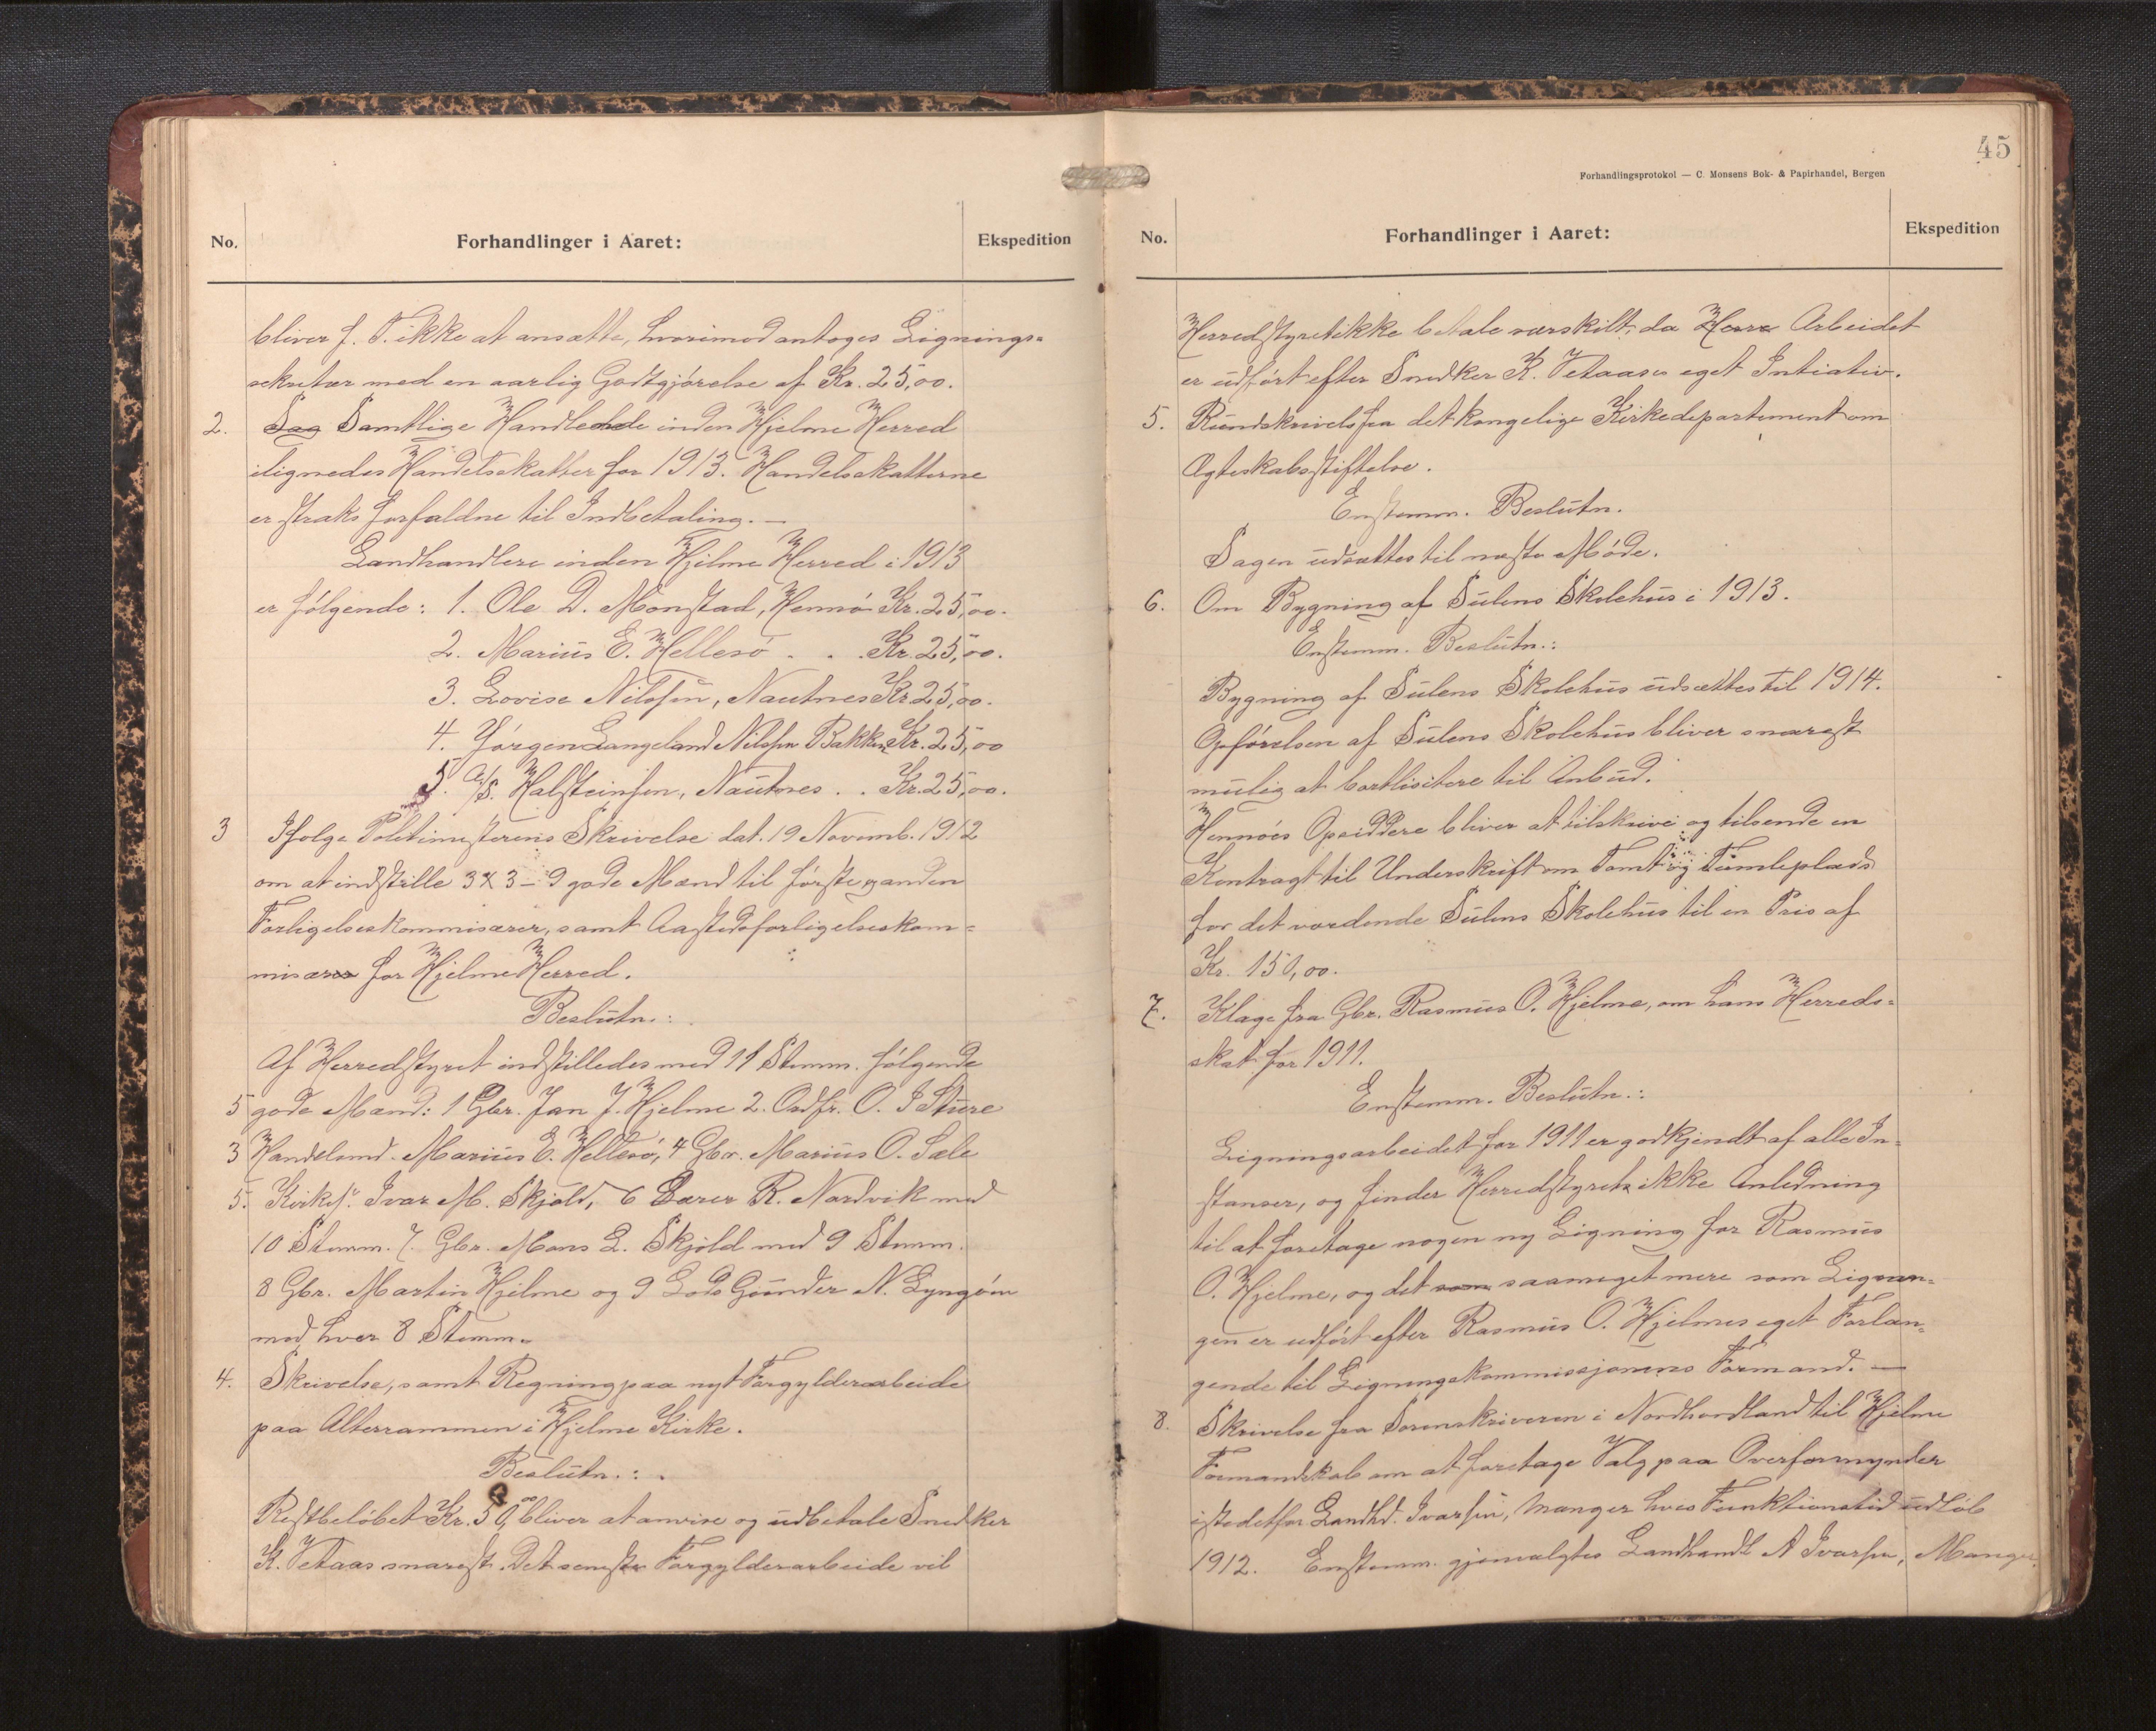 No.
Forhandlinger i Aaret:
Ekspedition
bliver f. T. ikke at ansætte, hvorimod antoges Lignings-
sekretær med en aarlig Godtgjørelse af Kr. 25,00.
2. Sag Samtlige Handlende inden Hjelme Herred
ilignedes Handelsskatter for 1913. Handelsskatterne
er straks forfaldne til Indbetaling. —
Landhandlere inden Hjelme Herred i 1913
er følgende: 1. Ole D. Monstad, Hennø Kr. 25,00.
2. Marius E. Hellesø . . . Kr. 25,00.
3. Lovise Nilsson, Nautnes Kr 25,00.
4. Jørgen Langeland Nilssen Bakken Kr. 25,00
5. A/S. Halsteinsen, Nautnes . . Kr. 25,00.
3 Ifølge Politimesterens Skrivelse dat. 19 Novemb. 1912
om at indstille 3 x 3 – 9 gode Mænd til første og anden
Forligelseskommisærer, samt Aastedsforligelseskom=
misærer for Hjelme Herred.
Beslutn.:
Af Herredstyret indstilledes med 11 Stemm. følgende
5 gode Mænd: 1 Gbr. Jan J. Hjelme 2. Ordfr. O. I Sture
3 Handelsmd. Marius E. Hellesø, 4 Gbr. Marius O. Sæle
5. Kirkes. Ivar M. Skjold, 6 Lærer R. Nordvik med
10 Stemm. 7. Gbr. Mons L. Skjold med 9 Stemm.
8 Gbr. Martin Hjelme og 9 Lods Gunder N. Lyngøen
med hver 8 Stemm.
4. Skrivelse, samt Regning paa nyt Forgylderarbeide
paa Alterrammen i Hjelme Kirke.
Beslutn.:
Restbeløbet Kr. 50,00 bliver at anvise og udbetale Snedker
K. Vetaas snarest. Det seneste Forgylderarbeide vil
45
Forhandlingsprotokol — C. Monsens Bok- & Papirhandel, Bergen
No.
Forhandlinger i Aaret:
Ekspedition
Herredstyret ikke betale særskilt, da Herre Arbeidet
er udført efter Snedker K. Vetaases eget Intiativ.
5. Rundskrivels fra det kongelige Kirkedepartement om
Ægteskabsstiftelse.
Enstemm. Beslutn.
Sagen udsættes til næste Møde.
6. Om Bygning af Sulens Skolehus i 1913.
Enstemm. Beslutn.:
Bygning af Sulens Skolehus udsættes til 1914.
Opførelsen af Sulens Skolehus bliver snarest
mulig at bortlisitere til Anbud.
Hennøes Opsiddere bliver at tilskrive og tilsende en
Kontragt til Underskrift om Tomt og Tumleplads
for det vordende Sulens Skolehus til en Pris af
Kr. 150,00.
7. Klage fra Gbr. Rasmus O. Hjelme, om hans Herreds=
skat for 1911.
Enstemm. Beslutn.:
Ligningsarbeidet for 1911 er godkjendt af alle In=
stanser, og finder Herredstyret ikke Anledning
til at foretage nogen ny Ligning for Rasmus
O. Hjelme, og det som saameget mere som Lignin=
gen er udført efter Rasmus O. Hjelmes eget Forlan=
gende til Ligningskommissjonens Formand. —
8. Skrivelse fra Sorenskriveren i Nordhordland til Hjelme
Formandskab om at foretage Valg paa Overformynder
istedetfor Landhd. Ivarsen, Manger hves Funktionstid udløb
1912. Enstemm. gjenvalgtes Landhandl A Ivarsen, Manger.